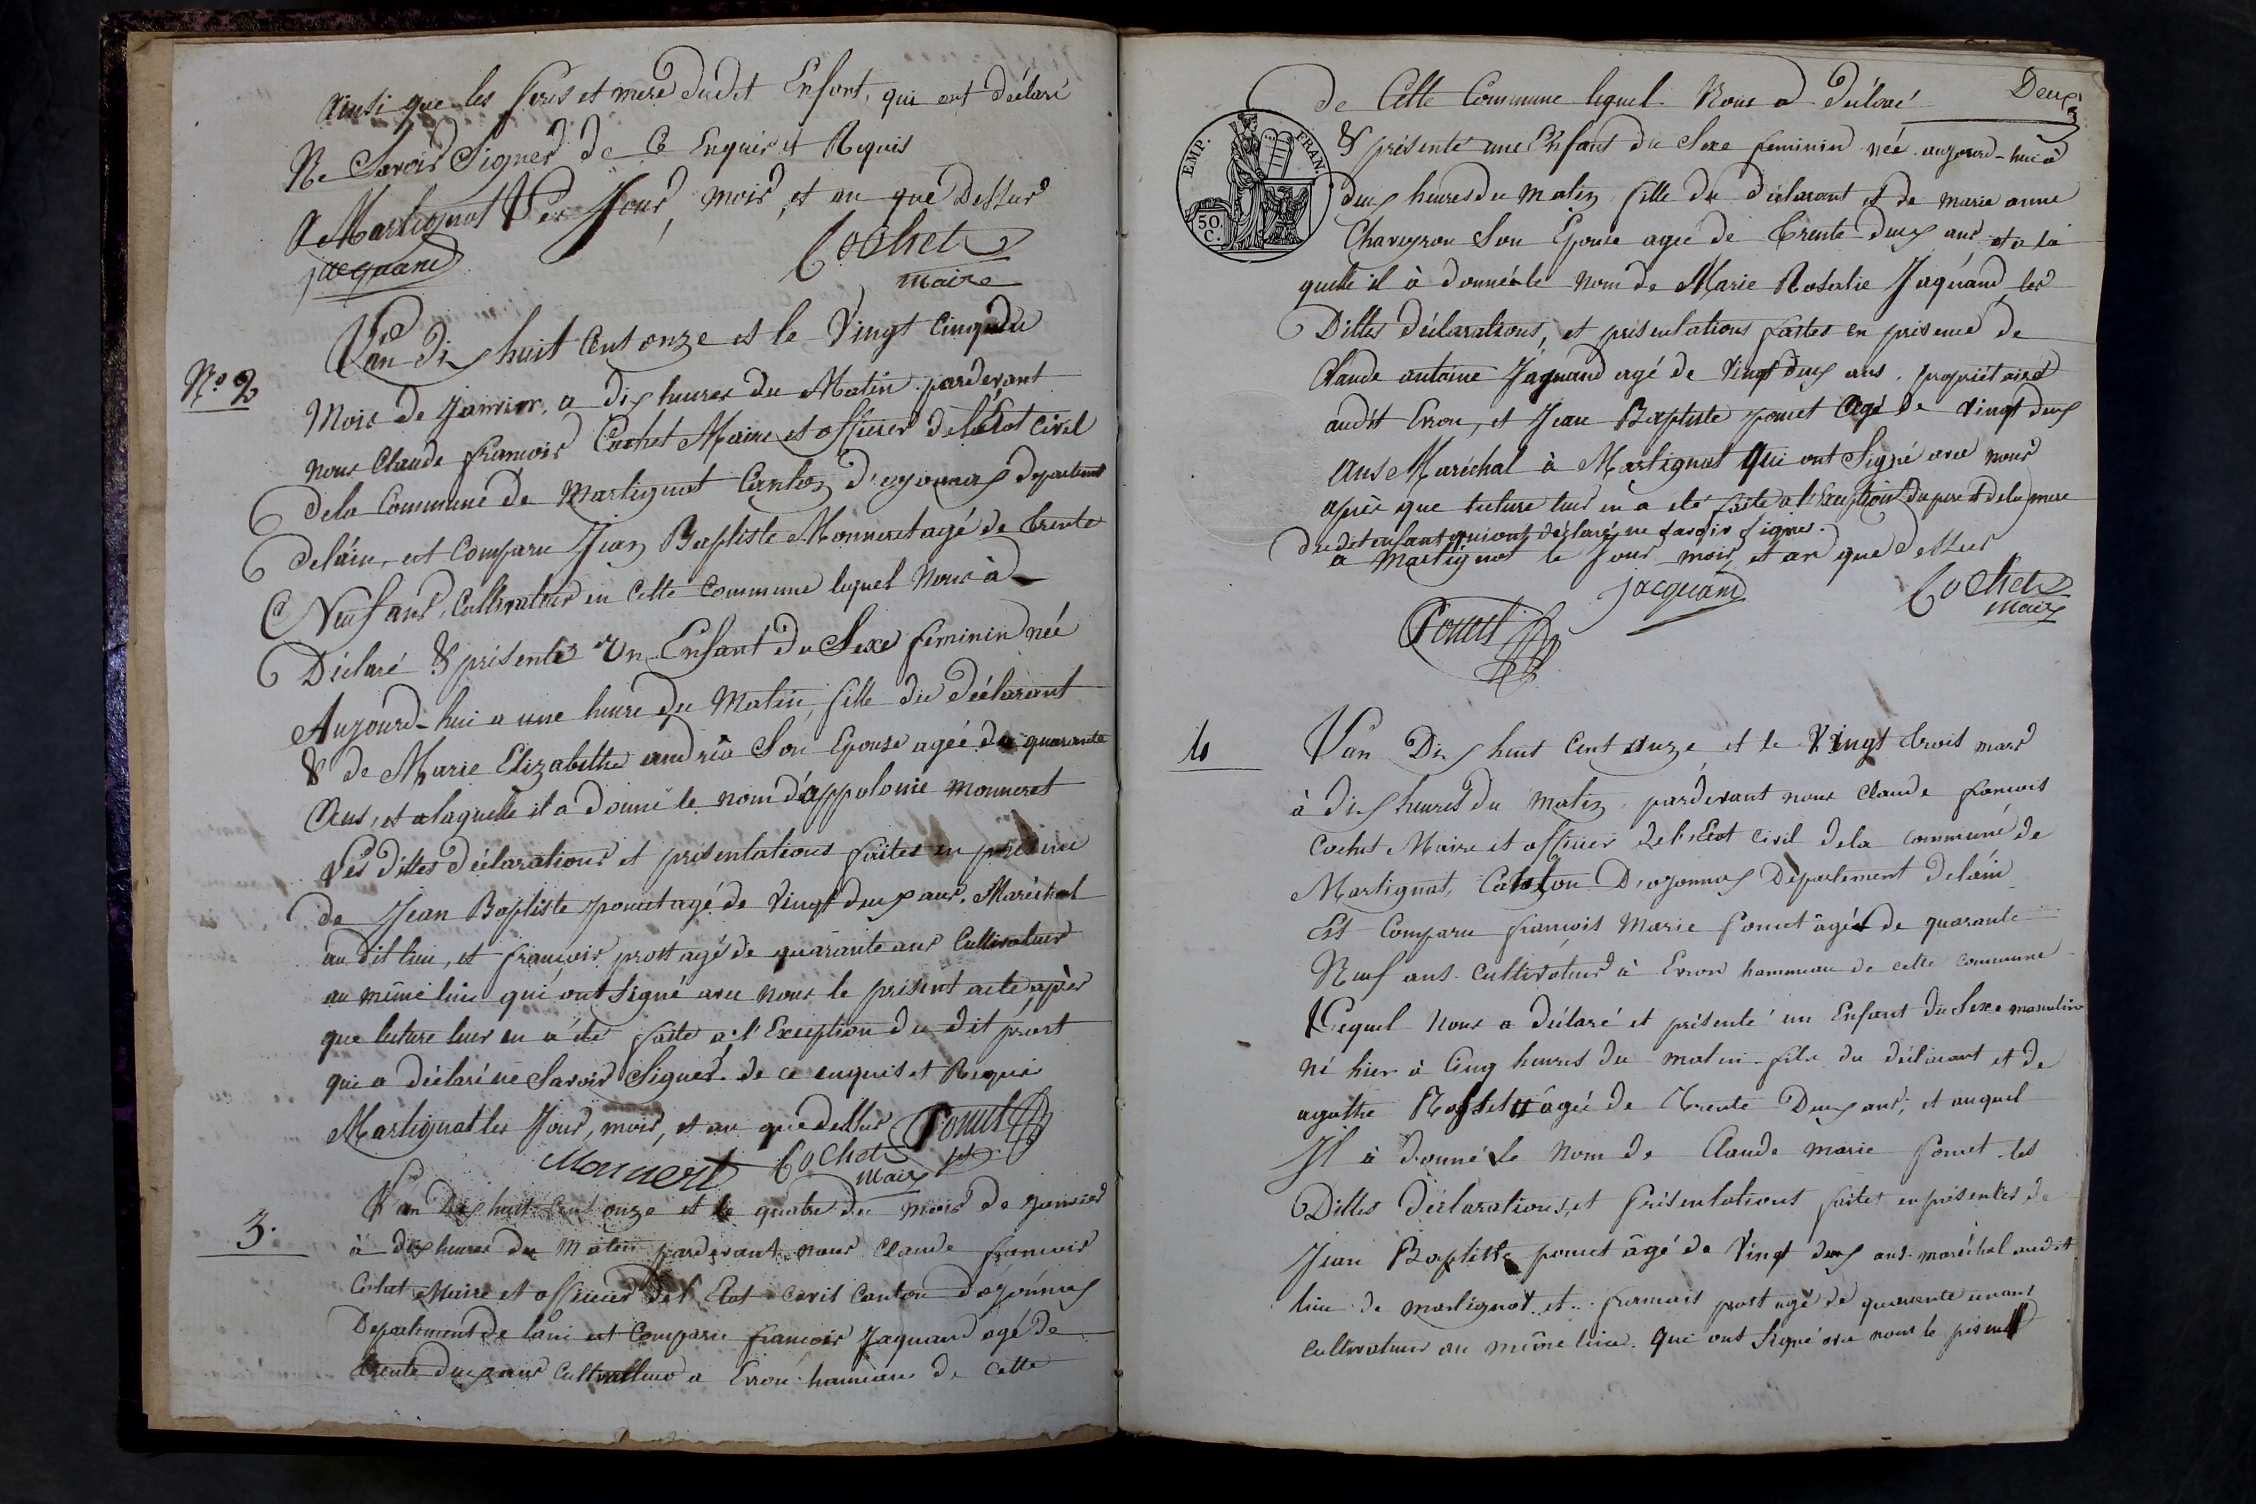 ainsi que les peres et mere dudit Enfant, qui ont déclaré
Ne Savoir Signer de Ce Enquis et Requis
A Martignat Les Jour, mois, et an que Dessus
jacquand
Cochet
maire
N.º 2
L'an Dix huit Cent onze et le Vingt Cinq du
Mois de Janvier, a dix heures du Matin pardevant
nous Claude francois Cochet Maire et officier de l'Etat Civil
dela Commune de Martignat Canton d'oyonnax departement
delain, est Comparu Jean Baptiste Monneret agé de trente
Neuf ans, Cultivateur en Cette Commune lequel Nous à
Déclaré & présenté Un Enfant du Sexe feminin née
Aujourd-hui a une heure du Matin, fille du déclarant
& de Marie Elizabethe andréa Son Epouse agée de quarante
Ans, et alaquelle il a donné le nom d'appolonie monneret
Les dittes déclarations et présentations faites en présence
de Jean Baptiste ponçet agé de Vingt deux ans, Maréchal
au dit lieu, et françois prost agé de quarante ans Cultivateur
au même lieu qui ont Signé avec nous le présent acte après
que lecture leur en a été faite a l'Exception du dit prost
qui a déclaré ne Savoir Signer de ce enquis et Requis
Martignat les Jour, mois, et an que dessus
Poncet
Monneret
Cochet
Maire
3.
L'an Dix huit Cent onze et le quatre du mois de Janvier
à dix heures du Matin pardevant nous Claude francois
Cochat Maire et officier de l'Etat Civil Canton d'oyonnax
Departement de lain est Comparu francois Jaquand agé de
trente deux ans Cultivateur a Evron hameau de Cette
Deux
de Cette Commune lequel Nous a déclaré
& présenté une Enfant du Sexe feminin née aujourd-hui à
EMP. FRAN.
50. C.
deux heures du matin fille du déclarant et de marie anne
Chaveyron Son Epouse agée de Trente deux ans et a la
quelle il à donné le nom de Marie Rosalie Jaquand les
Dittes déclarations, et présentations faites en présence de
Claude antoine Jaquand agé de Vingt deux ans, propriétaire
audit Evron, et Jean Baptiste poncet Agé de Vingt deux
Ans Maréchal à Martignat Qui ont Signé avec nous
après que lecture leur en a été faite a l'Exception du pere et dela mere
dudet enfant qui ont déclaré ne savoir signer.
a Martignat le Jour mois et an que dessus
jacquand
Cochet
maire
Poncet
4
L'an Dix huit Cent onze et le Vingt trois mars
à dix heures du Matin pardevant nous Claude francois
Cochet Maire et officier de l'Etat Civil dela commune de
Martignat, Canton D'oyonnax Departement delain
Est Comparu francois Marie Poncet âgé de quarante
Neuf ans Cultivateur à Evron hammeau de cette commune
Lequel Nous a déclaré et présenté un Enfant du Sexe masculin
Né hier à Cinq heures du matin fils du déclarant et de
agathe âgée de Trente Deux ans, et auquel
Il à donné le Nom de Claude marie Poncet les
Dittes Déclarations, et Présentations faites en présence de
Jean Baptiste poncet âgé de Vingt deux ans maréchal audit
lieu de martignat et francois prost agé de quarante un ans
Cultivateur au même lieu. Qui ont Signé avec nous le présent